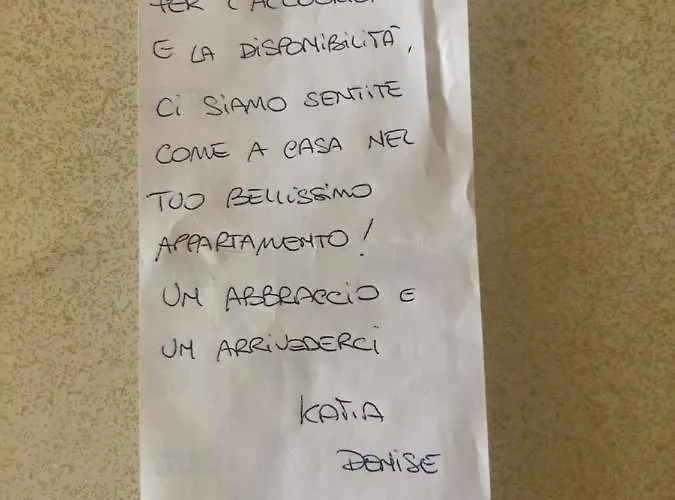 PER L'
E LA DISPONIBILITÀ,
CI SIAMO SENTITE
COME A CASA NEL
TUO BELLISSIMO
APPARTAMENTO!
UN ABBRACCIO E
UN ARRIVEDERCI
KATIA
DENISE